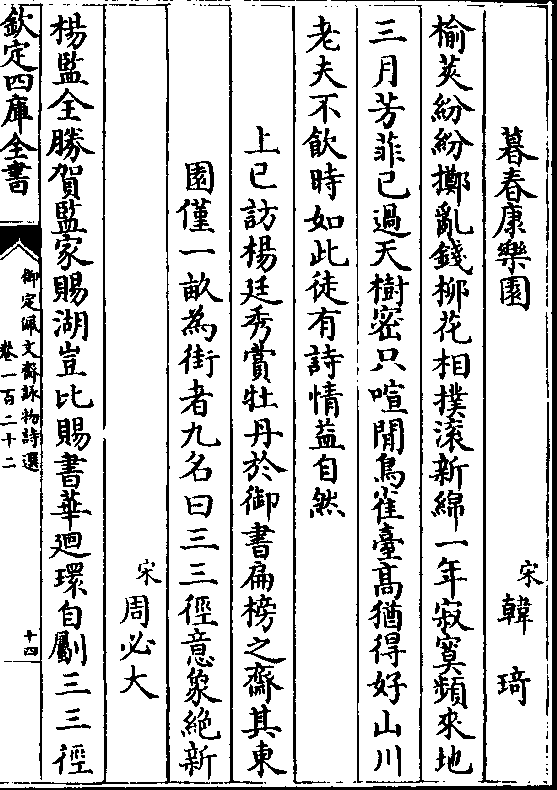 暮春康樂園
宋 韓琦
榆莢紛紛擲亂錢柳花相撲滾新綿一年寂寞頻來地
三月芳菲已過天樹密只喧閒鳥雀臺髙猶得好山川
老夫不飲時如此徒有詩情益自然
上巳訪楊廷秀賞牡丹於御書扁榜之齋其東
園僅一畝為街者九名曰三三徑意象絶新
宋 周必大
楊監全勝賀監家賜湖豈比賜書華廻環自斸三三徑
欽定四庫全書
御定佩文齋詠物詩選
卷一百二十二
十四